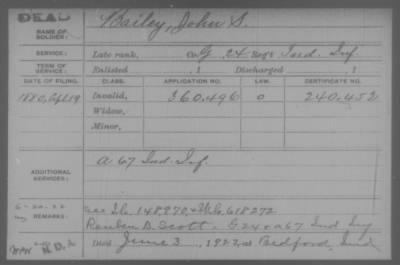 DEAD
NAME OF SOLDIER: Bailey, John S.
SERVICE: Late rank, Co. G, 24 Reg't Ind. Inf.
TERM OF SERVICE: Enlisted , 1 Discharged , 1
DATE OF FILING. CLASS. APPLICATION NO. LAW. CERTIFICATE NO.
1880, Apl 19 Invalid, 360,496 0 240,452
Widow,
Minor,
ADDITIONAL SERVICES: A 67 Ind. Inf.
6-20-22
REMARKS: 148,970, 618272
Reuben D. Scott - G 24 & A 67 Ind Inf
Died June 3, 1922, at Bedford, Ind